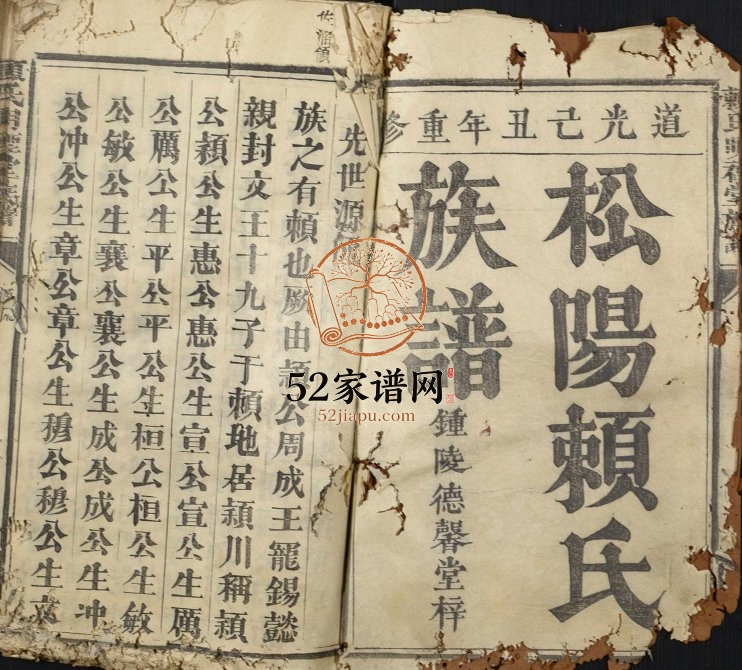 道光己丑年重修
松陽賴氏
族譜
鍾陵德馨堂梓
先世源
族之有賴也厥由頴公周成王寵錫懿
親封文王十九子于賴地居頴川稱頴
公頴公生惠公惠公生宣公宣公生厲
公厲公生平公平公生桓公桓公生敏
公敏公生襄公襄公生成公成公生冲
公冲公生章公章公生穆公穆公生
52家谱网
52jiapu.com